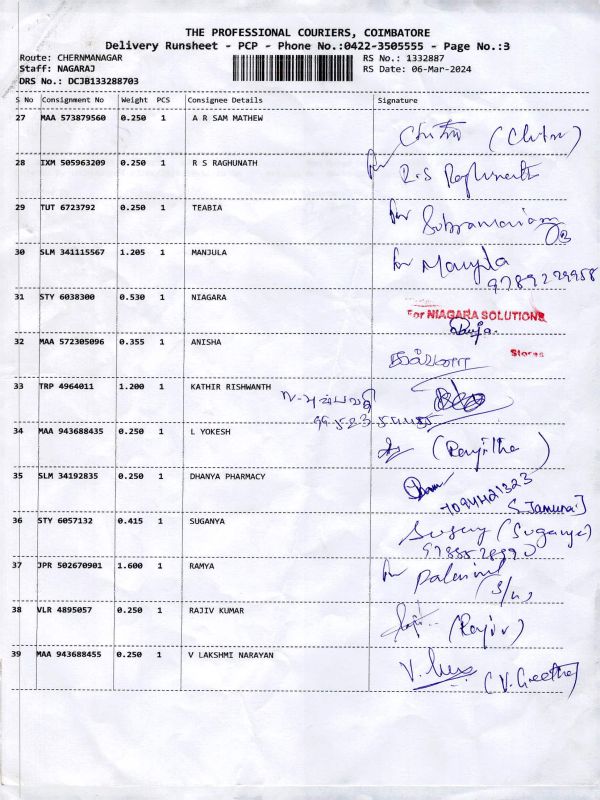 THE PROFESSIONAL COURIERS, COIMBATORE
Delivery Runsheet - PCP - Phone No.:0422-3505555 - Page No.:3
Route: CHERNMANAGAR RS No.: 1332887
Staff: NAGARAJ RS Date: 06-Mar-2024
DRS No.: DCJB133288703
S No Consignment No Weight PCS Consignee Details Signature
27 MAA 573879560 0.250 1 A R SAM MATHEW
28 IXM 505963209 0.250 1 R S RAGHUNATH R.S Raghunath
29 TUT 6723792 0.250 1 TEABIA for Subramaniam
30 SLM 341115567 1.205 1 MANJULA for Manjula
9789229958
31 STY 6038300 0.530 1 NIAGARA For NIAGARA SOLUTIONS
32 MAA 572305096 0.355 1 ANISHA Stores
33 TRP 4964011 1.200 1 KATHIR RISHWANTH
34 MAA 943688435 0.250 1 L YOKESH (Ranjitha)
35 SLM 34192835 0.250 1 DHANYA PHARMACY
36 STY 6057132 0.415 1 SUGANYA (Suganya)
37 JPR 502670901 1.600 1 RAMYA for
38 VLR 4895057 0.250 1 RAJIV KUMAR (Rajiv)
39 MAA 943688455 0.250 1 V LAKSHMI NARAYAN (V. Geetha)